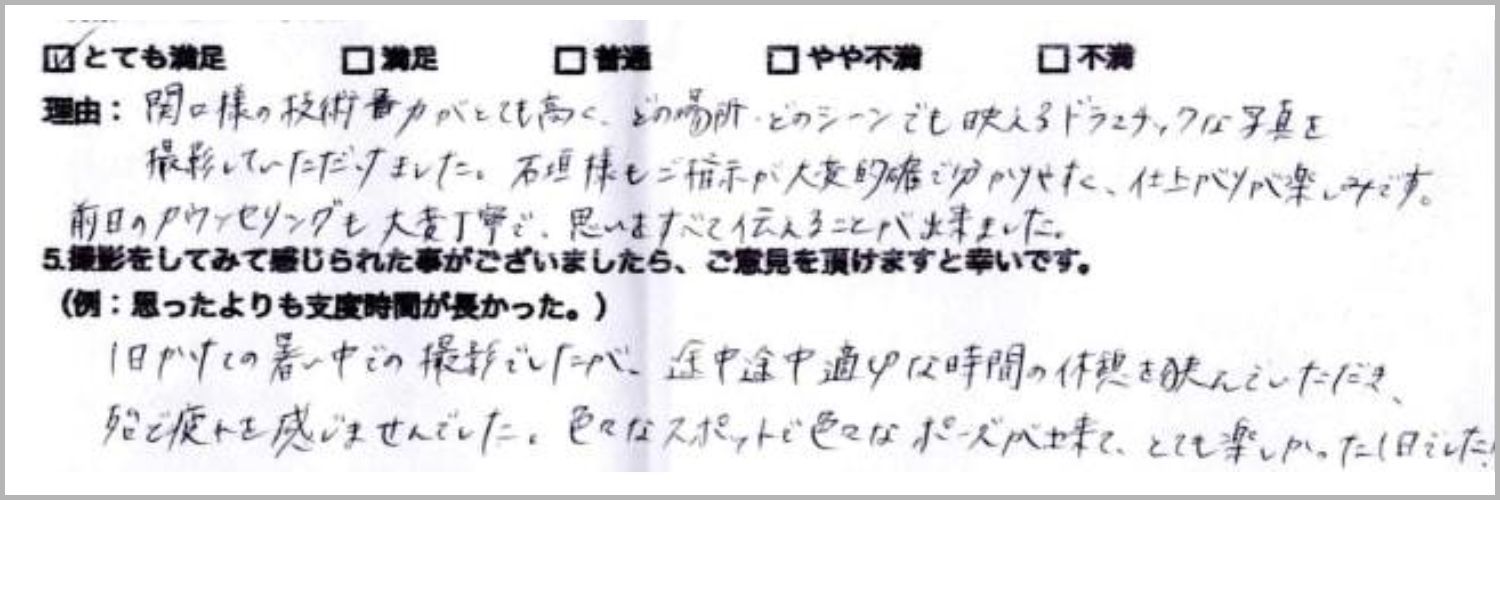 ☑とても満足 □満足 □普通 □やや不満 □不満
理由：関口様の技術力がとても高く、どの場所・どのシーンでも映えるドラマチックな写真を
撮影していただけました。石垣様もご指示が大変的確で分かりやすく、仕上がりが楽しみです。
前日のカウンセリングも大変丁寧で、思いをすべて伝えることが出来ました。
5.撮影をしてみて感じられた事がございましたら、ご意見を頂けますと幸いです。
（例：思ったよりも支度時間が長かった。）
1日かけての暑い中での撮影でしたが、途中途中適切な時間の休憩を挟んでいただき、
殆ど疲れを感じませんでした。色々なスポットで色々なポーズが出来て、とても楽しかった1日でした!